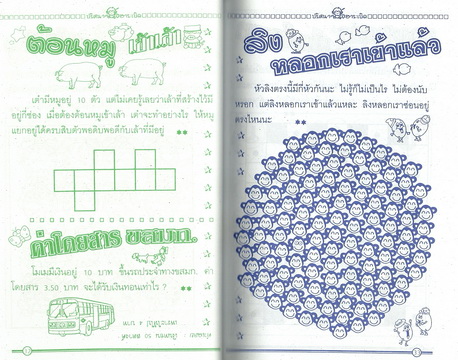 ต้อนหมู เข้าเล้า
เต๋ามีหมูอยู่ 10 ตัว แต่ไม่เคยรู้เลยว่าเล้าที่สร้างไว้มี
อยู่กี่ช่อง เมื่อต้องต้อนหมูเข้าเล้า เต๋าจะทำอย่างไร ให้หมู
แยกอยู่ได้ครบสิบตัวพอดิบพอดีกับเล้าที่มีอยู่ **
ค่าโดยสาร ขสมก.
โมเมมีเงินอยู่ 10 บาท ขึ้นรถประจำทางขสมก. ค่า
โดยสาร 3.50 บาท จะได้รับเงินทอนเท่าไร ? **
ลิง
หลอกเราเข้าแล้ว
หัวลิงตรงนี้มีกี่หัวกันนะ ไม่รู้ก็ไม่เป็นไร ไม่ต้องนับ
หรอก แต่ลิงหลอกเราเข้าแล้วแหละ ลิงหลอกเราซ่อนอยู่
ตรงไหนนะ **